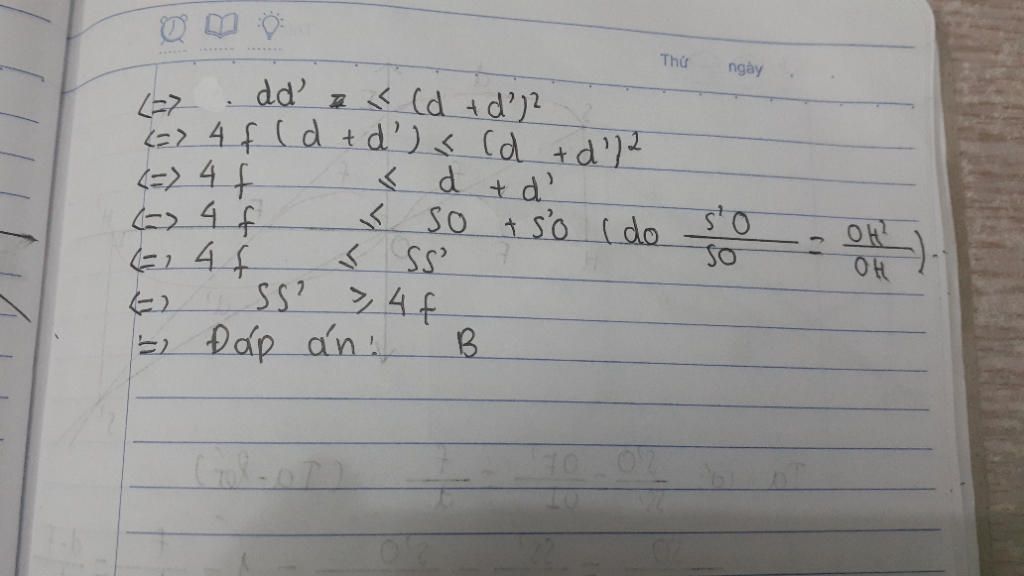 Thứ ngày
<=> . dd' ≤ (d + d')²
<=> 4 f (d + d') ≤ (d + d')²
<=> 4 f ≤ d + d'
<=> 4 f ≤ SO + S'O (do S'O/SO = OH'/OH)
<=> 4 f ≤ SS'
<=> SS' ≥ 4 f
=> Đáp án: B